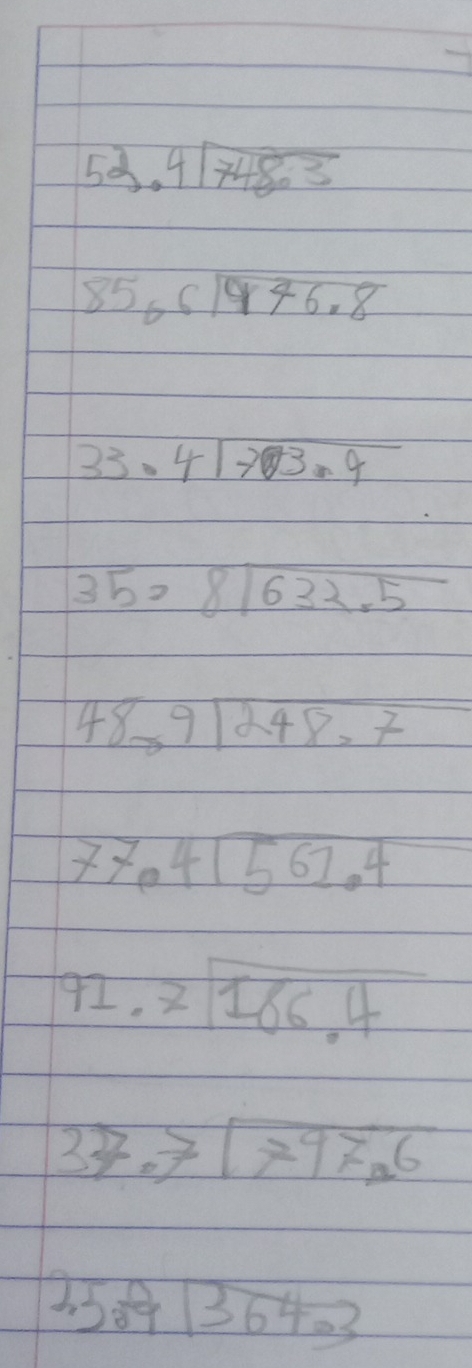 53.4 748.3
85.6 976.8
33.4 703.9
35. 8 632.5
48.9 248.7
77.4 561.4
91.7 166.4
37.7 797.6
364.3